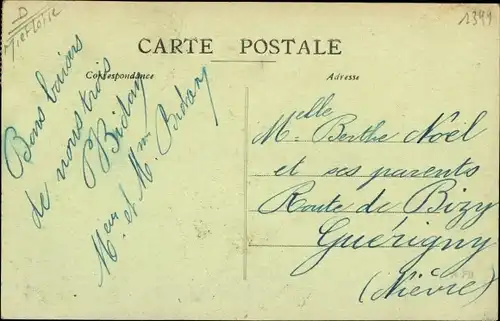 D
M et Loire
1349
CARTE POSTALE
Correspondance
Adresse
Bons baisers
de nous trois
Bidan
Mr et Mme Bidan
Melle Berthe Noël
et ses parents
Route de Bizy
Guérigny
(Nièvre)